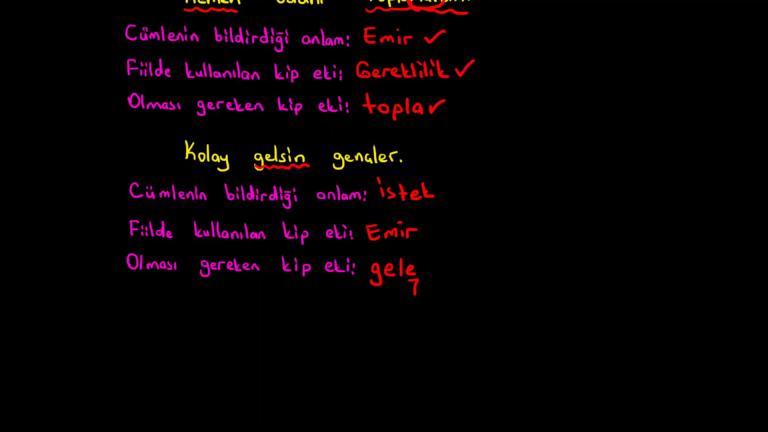 Cümlenin bildirdiği anlam: Emir ✓
Fiilde kullanılan kip eki: Gereklilik ✓
Olması gereken kip eki: topla ✓
Kolay gelsin gençler.
Cümlenin bildirdiği anlam: istek
Fiilde kullanılan kip eki: Emir
Olması gereken kip eki: gele